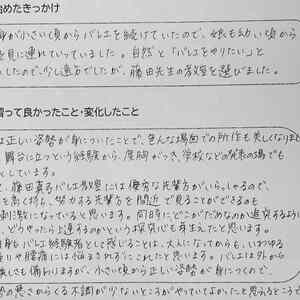 始めたきっかけ
が小さい頃からバレエを続けていたので、娘も幼い頃から
を見に連れていっていました。自然と「バレエをやりたい」と
したので、少し遠方でしたが、藤田先生の教室を選びました。
習って良かったこと・変化したこと
は正しい姿勢が身についたことで、色んな場面での所作も美しくなりま
舞台に立つという経験から、度胸がつき、学校などの発表の場でも
しています。
、藤田真弓バレエ教室には優秀な先輩方がいらっしゃるので、
を高く持ち、努力する先輩を間近で見ることができるのも
刺激になっていると思います。同時にどこがだめなのか追求するように
、どうやったら上達するのかという探究心も芽生えたと思います。
身もバレエ経験者として感じることは、大人になってからも、いわゆる
りや腰痛には悩まされずにこれたと思います。バレエは外から
美しさも備わりますが、小さい頃から正しい姿勢が身につくので、
勢の悪さからくる不調が少ないところがやっていてよかったと思えるところで